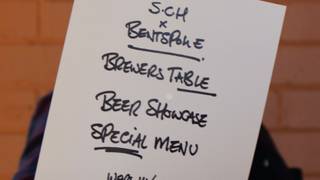 S.C.H
x
BENTSPOKE
BREWERS TABLE
BEER SHOWCASE
SPECIAL MENU